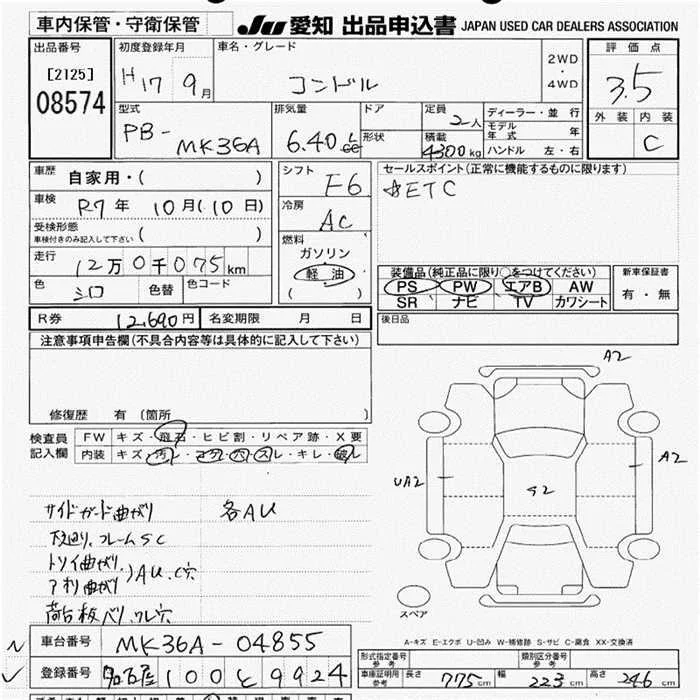 車内保管・守衛保管
JU 愛知 出品申込書 JAPAN USED CAR DEALERS ASSOCIATION
出品番号 初度登録年月 車名・グレード 2WD・4WD 評価点
[2125]
08574
H17 9月 コンドル 3.5
型式 排気量 ドア 定員 2人 ディーラー・並行 外装 内装
PB-MK36A 6.40 L cc 形状 積載 4300kg モデル年式 年 C
ハンドル 左・右
車歴 自家用・( ) シフト F6 セールスポイント(正常に機能するものに限ります)
☆ETC
車検 R7年 10月(10日) 冷房 AC
受検形態
車検付きのみ記入して下さい ( ) 燃料
ガソリン
走行 12万0千075km 軽油
( )
装備品(純正品に限り○をつけてください) 新車保証書
PS PW エアB AW 有・無
SR ナビ TV カワシート
色 シロ 色替 色コード
R券 12,690円 名変期限 月 日 後日品
注意事項申告欄(不具合内容等は具体的に記入して下さい)
修復歴 有 (箇所 )
検査員記入欄 FW キズ・飛石・ヒビ割・リペア跡・X要
内装 キズ・汚レ・コゲ・穴・スレ・キレ・破レ
A2
UA2
S2
A2
サイドガード曲がり 各AU
下廻り、フレームSC
トリイ曲がり、
アオリ曲がり )AU、C穴
荷台板ハリ、ワレ穴
スペア
車台番号 MK36A-04855
登録番号 名古屋 100 と 9924
A-キズ E-エクボ U-凹み W-補修跡 S-サビ C-腐食 XX-交換済
形式指定番号 参考 類別区分番号 参考
車庫証明用 参考 長さ 775cm 幅 223cm 高さ 246cm